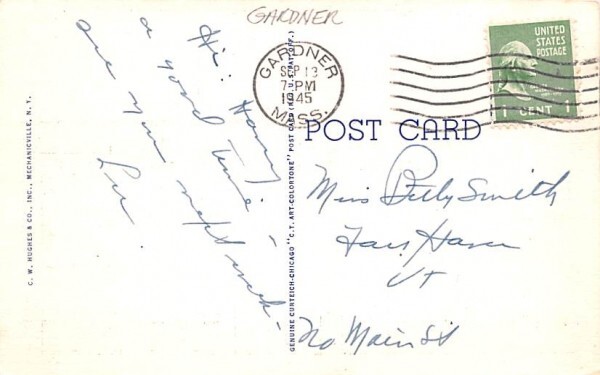 GARDNER
GARDNER
SEP 13
7-PM
1945
MASS.
UNITED
STATES
POSTAGE
1 CENT 1
POST CARD
Hi: Having
a good time -
see you next week -
Miss Betty Smith
Fair Haven
Vt
No Main St
C. W. HUGHES & CO., INC., MECHANICVILLE, N. Y.
GENUINE CURTEICH-CHICAGO "C. T. ART-COLORTONE" POST CARD (REG. U. S. PAT. OFF.)